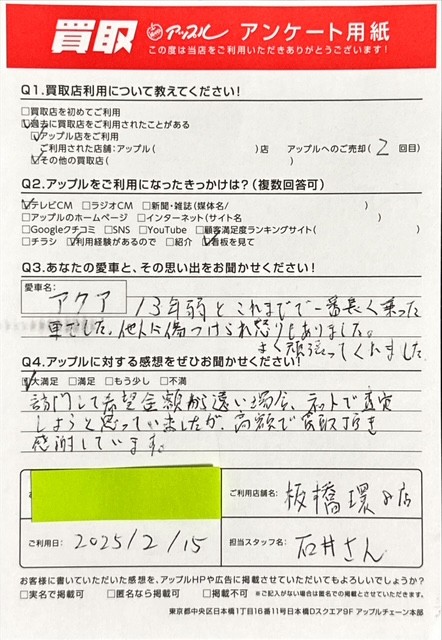 買取 アップル アンケート用紙
この度は当店をご利用いただきありがとうございます!
Q1.買取店利用について教えてください!
□買取店を初めてご利用
☑過去に買取店をご利用されたことがある
☑アップル店をご利用
ご利用された店舗:アップル( )店 アップルへのご売却( 2 回目)
☑その他の買取店( )
Q2.アップルをご利用になったきっかけは?(複数回答可)
☑テレビCM □ラジオCM □新聞・雑誌(媒体名/ )
□アップルのホームページ □インターネット(サイト名 )
□Googleクチコミ □SNS □YouTube □顧客満足度ランキングサイト( )
□チラシ ☑利用経験があるので □紹介 ☑看板を見て
Q3.あなたの愛車と、その思い出をお聞かせください!
愛車名:
アクア 13年弱とこれまでで一番長く乗った
車でした。他人に傷つけられ怒りもありました。
よく頑張ってくれました
Q4.アップルに対する感想をぜひお聞かせください!
☑大満足 □満足 □もう少し □不満
訪門して希望金額から遠い場合、ネットで査定
しようと思っていましたが、高額で買取頂き
感謝しています。
ご利用店舗名: 板橋環8店
ご利用日: 2025/2/15 担当スタッフ名: 石井さん
お客様に書いていただいた感想を、アップルHPや広告に掲載させていただいてもよろしいでしょうか?
□実名で掲載可 □匿名なら掲載可 □掲載不可 ※ご記入がない場合は匿名での掲載とさせていただきます。
東京都中央区日本橋1丁目16番11号日本橋Dスクエア9F アップルチェーン本部